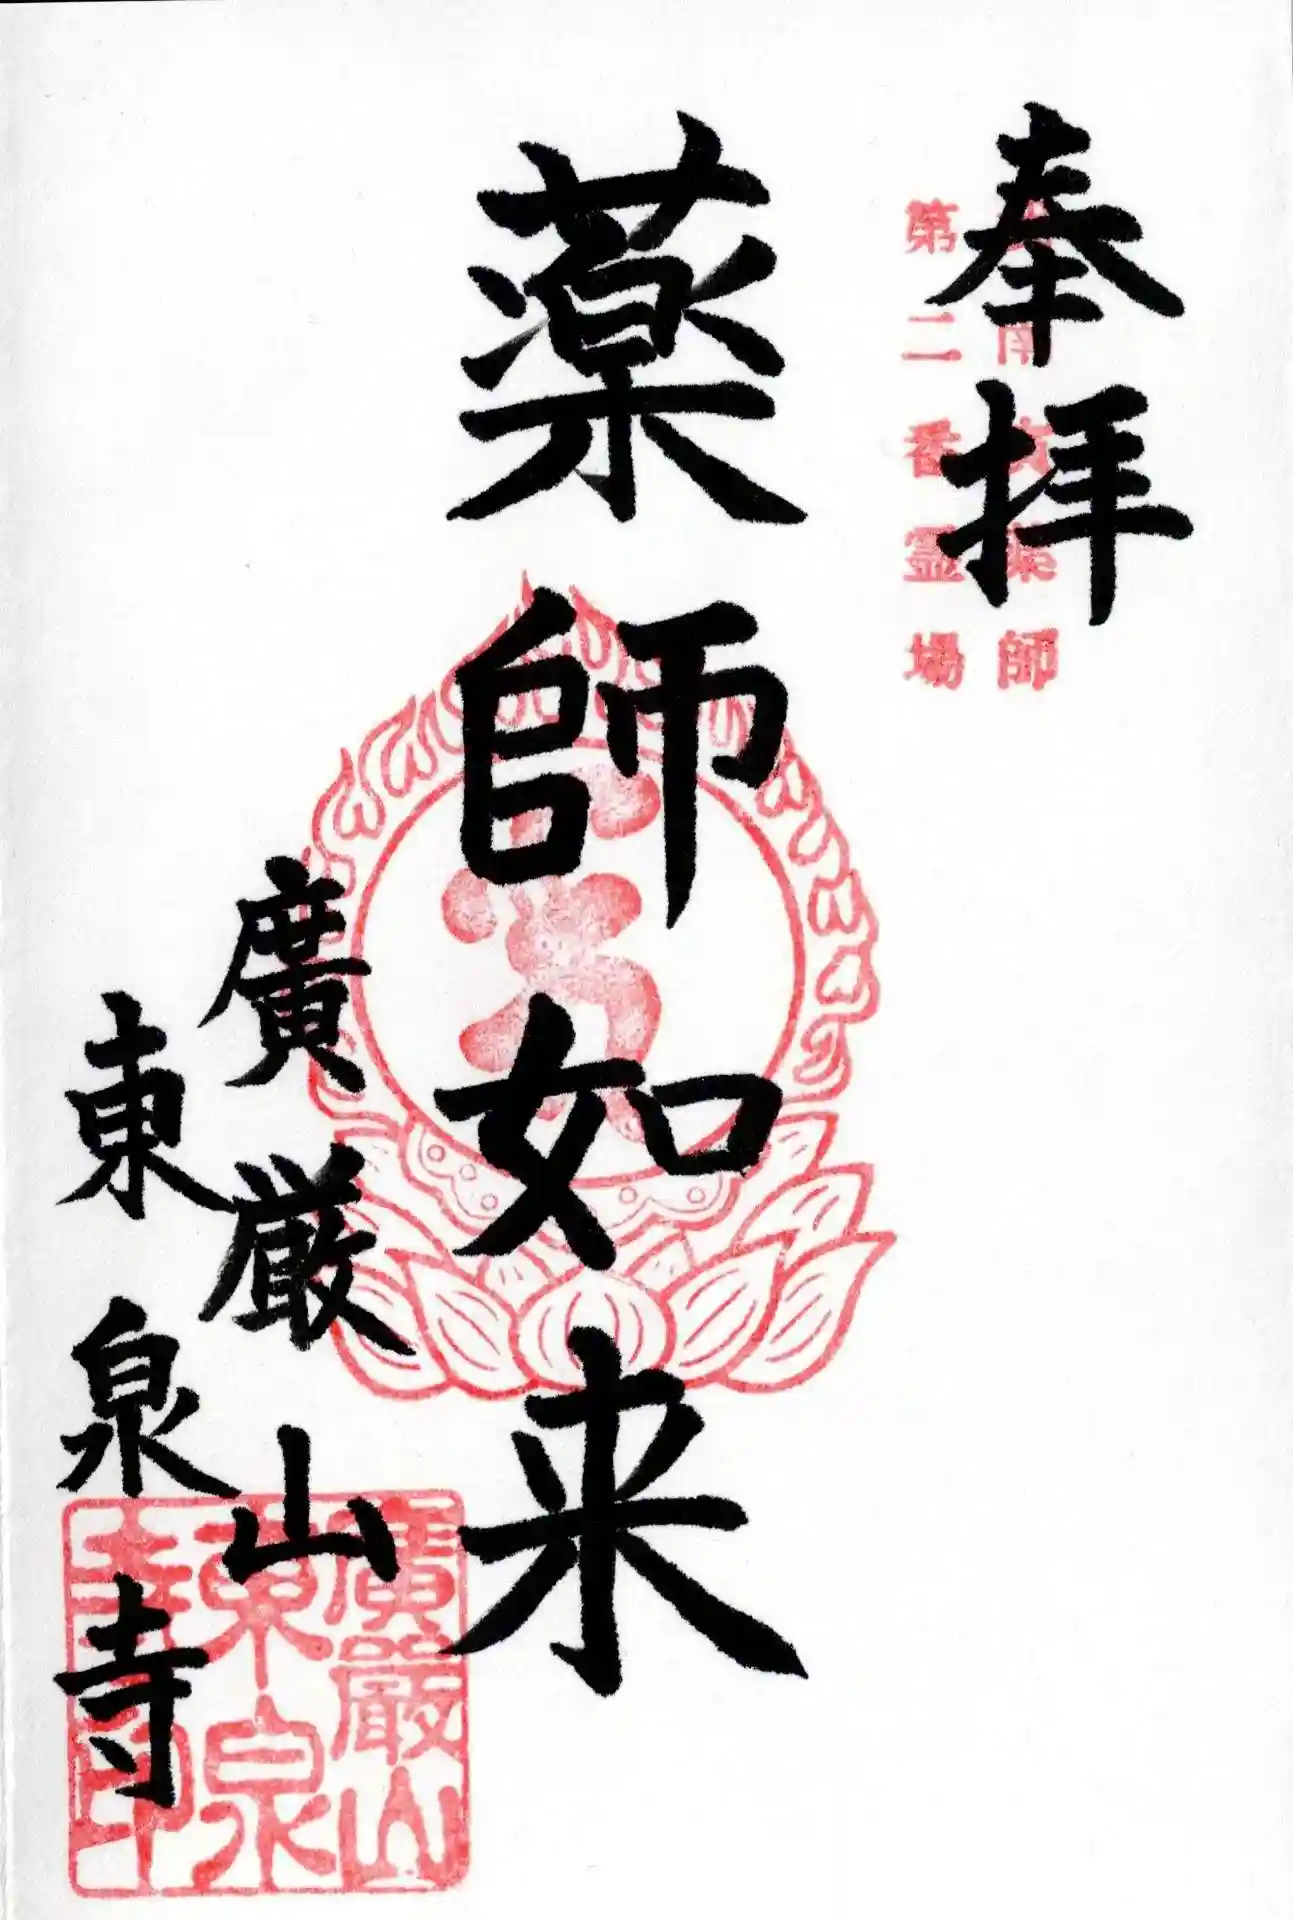 奉拝
師
第二番霊場
薬師如来
廣厳山
東泉寺
廣嚴山
東泉
寺印